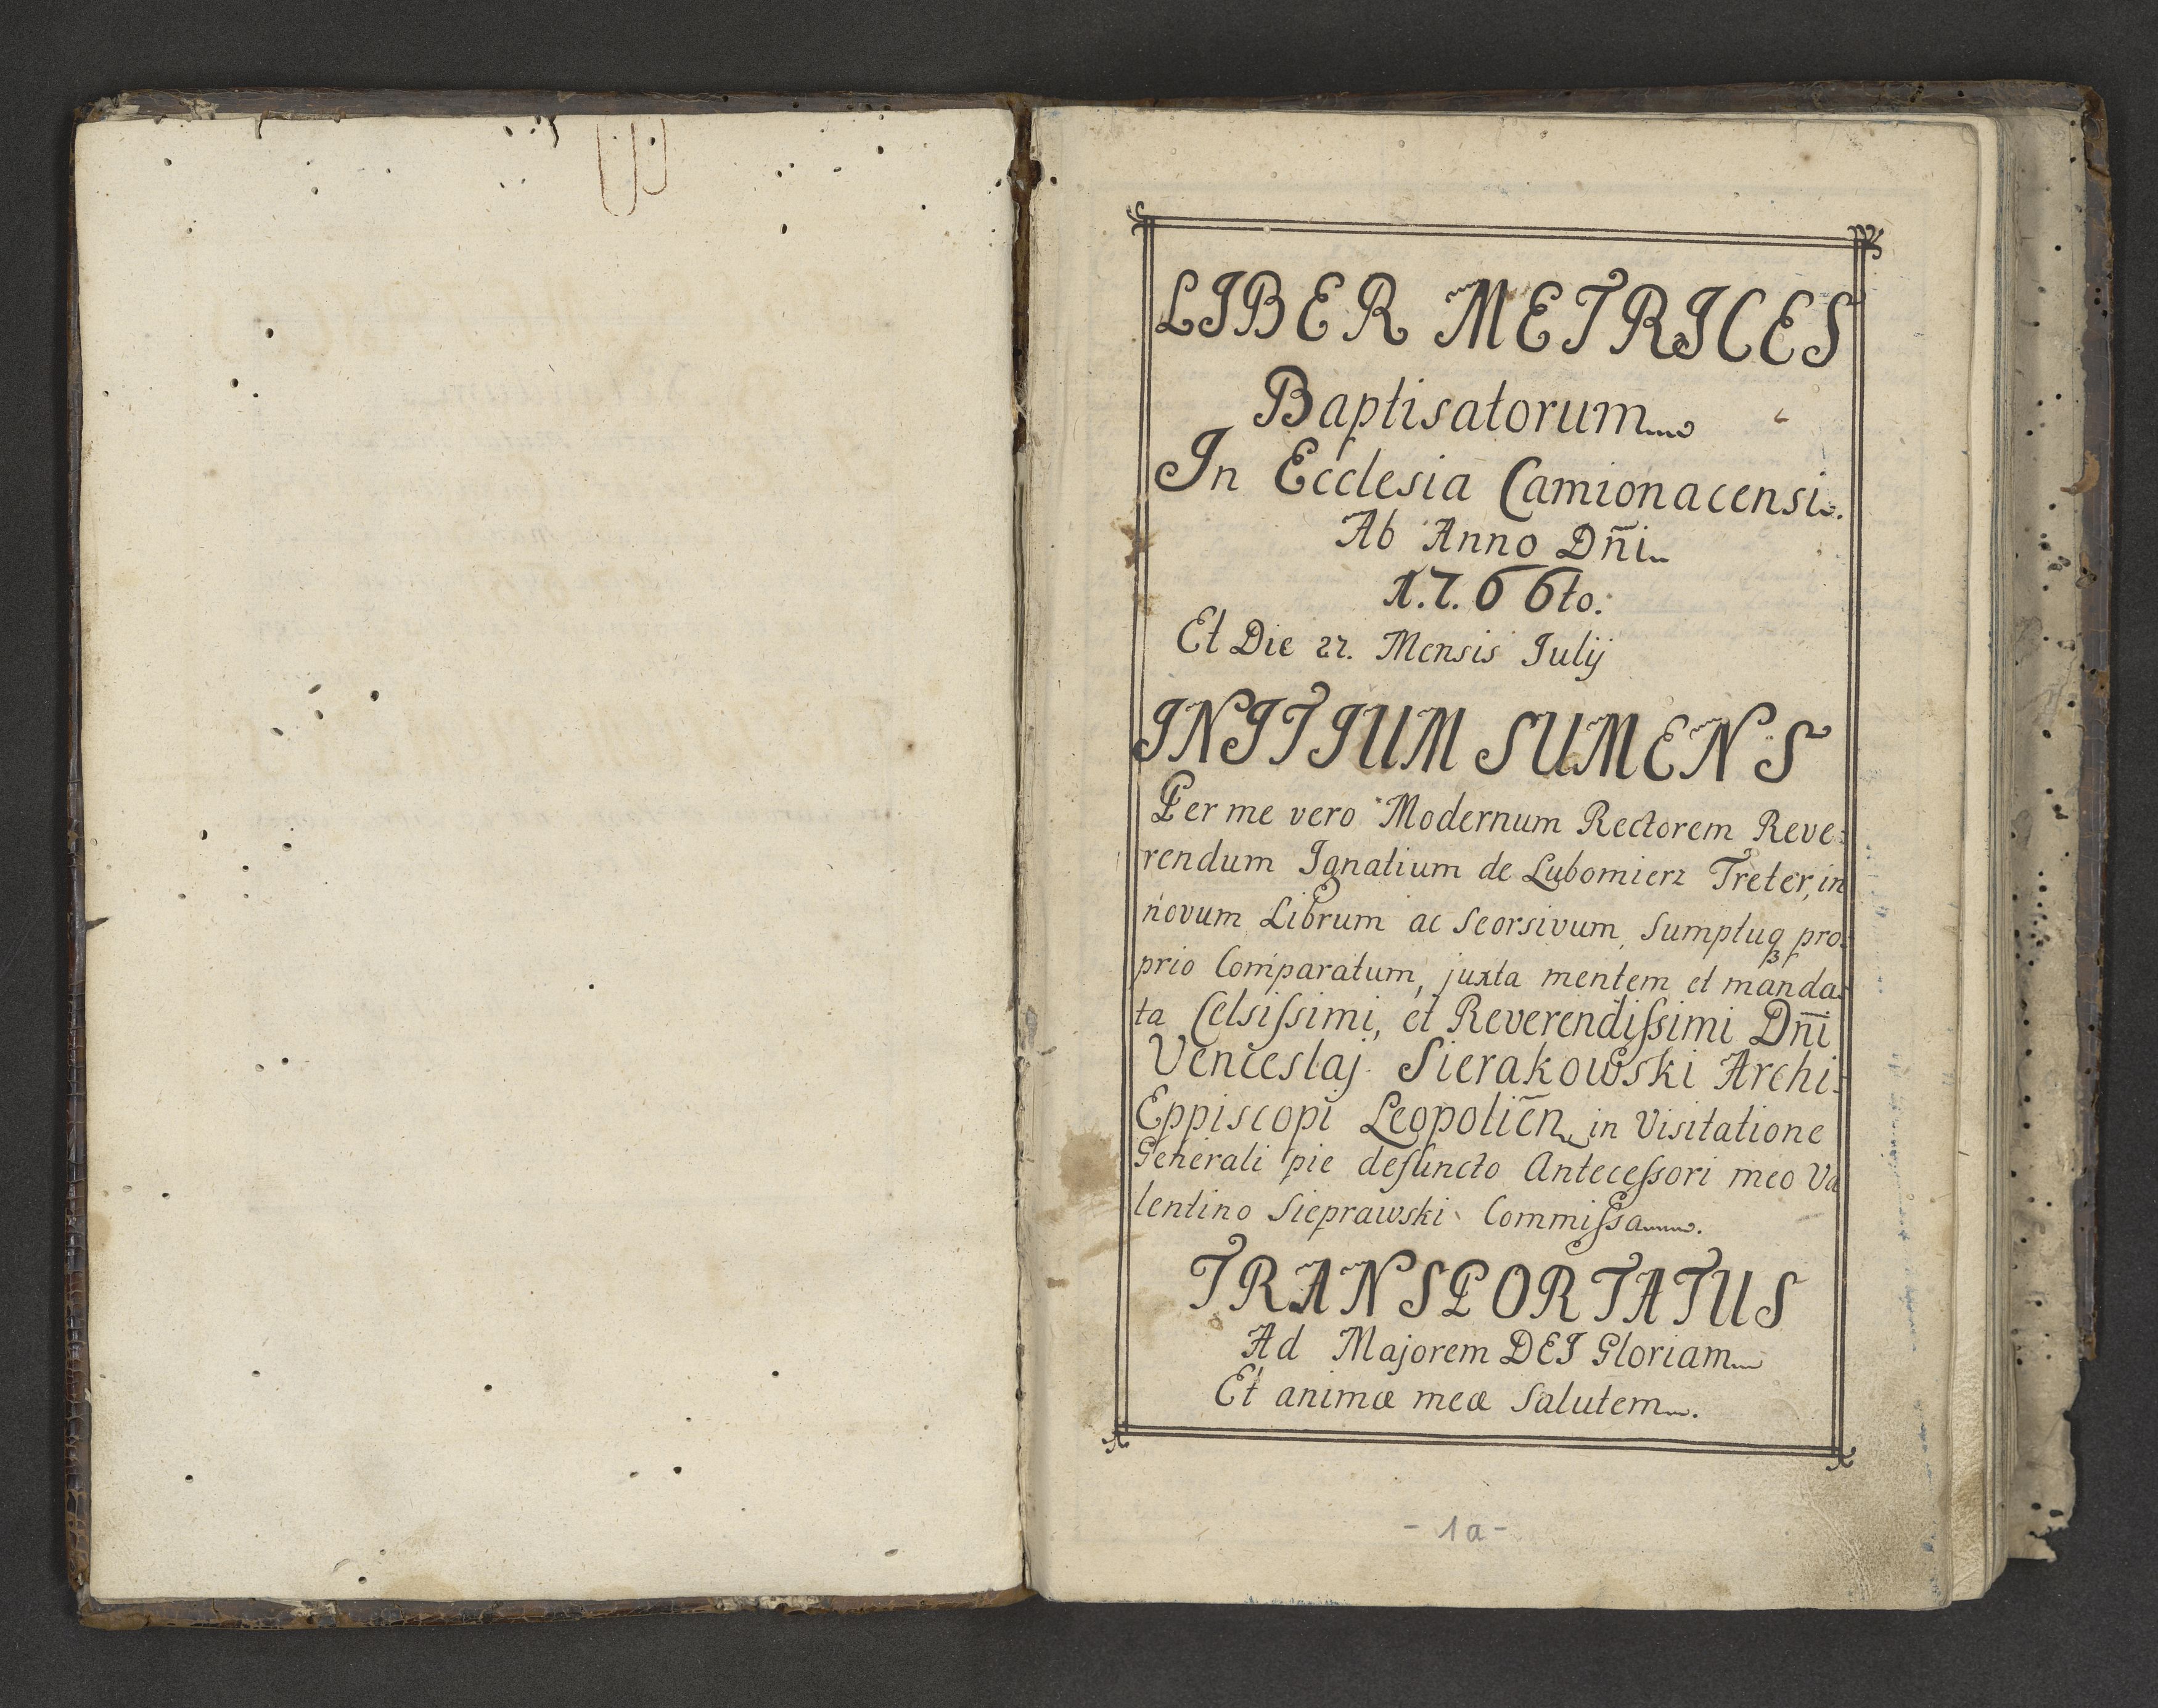 LIBER METRICES
Baptisatorum
In Ecclesia Camionacensi.
Ab Anno Dn̄i
1.7.66to.
Et Die 27. Mensis Julij
INITIUM SUMENS
Per me vero Modernum Rectorem Reve:
rendum Ignatium de Lubomierz Treter, in
novum Librum ac Seorsivum, Sumptuq₃ pro:
prio Comparatum, juxta mentem et manda:
ta Celsiſsimi, et Reverendiſsimi Dn̄i
Venceslaj Sierakowski Archi:
Eppiscopi Leopolien̄ in Visitatione
Generali pie defuncto Anteceſsori meo Va
lentino Sieprawski Commiſsa.
TRANSPORTATUS
Ad Majorem DEI Gloriam
Et animæ meæ Salutem.
- 1a -